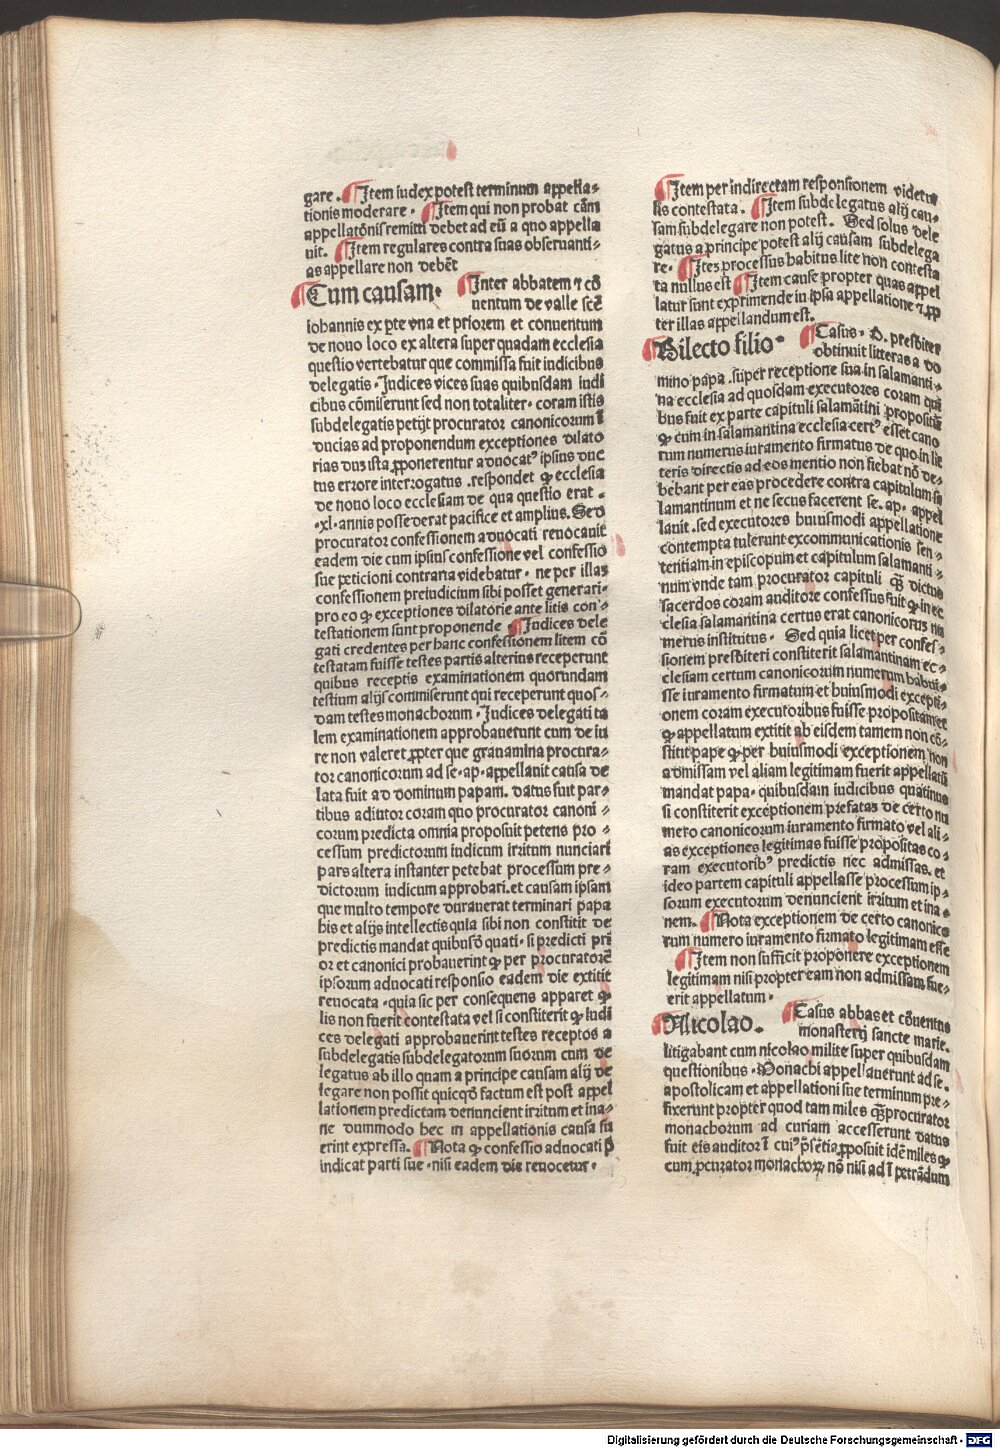 gare. ¶ Item iudex potest terminum appella⸗
tionis moderare. ¶ Item qui non probat cām
appellatōnis remitti debet ad eū a quo appella
uit. ¶ Item regulares contra suas obseruanti⸗
as appellare non debēt
¶ Cum causam. ¶ Inter abbatem ⁊ cō
uentum de valle scē
iohannis ex pte vna et priorem et conuentum
de nouo loco ex altera super quadam ecclesia
questio vertebatur que commissa fuit iudicibus
delegatis. Iudices vices suas quibusdam iudi
cibus cōmiserunt sed non totaliter. coram istis
subdelegatis petijt procurator canonicorum ī
ducias ad proponendum exceptiones dilato
rias dum ista ꝓponerentur aduocatꝰ ipsius duc
tus errore interrogatus .respondet ꝙ ecclesia
de nouo loco ecclesiam de qua questio erat .
.xl. annis possederat pacifice et amplius. Sed
procurator confessionem aduocati reuocauit
eadem die cum ipsius confessione vel confessio
sue peticioni contraria videbatur. ne per illas
confessionem preiudicium sibi posset generari.
pro eo ꝙ exceptiones dilatorie ante litis con⸗
testationem sunt proponende ¶ Iudices dele
gati credentes per hanc confessionem litem cō
testatam fuisse testes partis alterius receperunt
quibus receptis examinationem quorundam
testium alijs commiserunt qui receperunt quos⸗
dam testes monachorum. Iudices delegati ta
lem examinationem approbauerunt cum de iu
re non valeret ꝓpter que grauamina procura⸗
tor canonicorum ad se. ap. appellauit causa de
lata fuit ad dominum papam. datus fuit par⸗
tibus aditutor coram quo procurator canoni⸗
corum predicta omnia proposuit petens pro⸗
cessum predictorum iudicum irritum nunciari
pars altera instanter petebat processum pre⸗
dictorum iudicum approbari. et causam ipsam
que multo tempore durauerat terminari papa
his et alijs intellectis quia sibi non constitit de
predictis mandat quibusō quati. si predicti pri
or et canonici probauerint ꝙ per procuratorē
ipsorum aduocati responsio eadem die extitit
reuocata. quia sic per consequens apparet ꝙ
lis non fuerit contestata vel si constiterit ꝙ iudi
ces delegati approbauerint testes receptos a
subdelegatis subdelegatorum suorum cum de
legatus ab illo quam a principe causam alij de
legare non possit quicqō factum est post appel
lationem predictam denuncient irritum et ina⸗
ne dummodo hec in appellationis causa fu
erint expressa. ¶ Nota ꝙ confessio aduocati p̄
iudicat parti sue. nisi eadem die reuocetur.
¶ Item per indirectam responsionem videtur
lis contestata. ¶ Item subdelegatus alij cau⸗
sam subdelegare non potest. Sed solus dele
gatus a principe potest alij causam subdelega
re. ¶ Itez processus habitus lite non contesta
ta nullus est ¶ Item cause propter quas appel
latur sunt exprimende in ipsa appellatione ⁊ ꝓp
ter illas appellandum est.
¶ Dilecto filio. ¶ Casus. D. presbiter
obtinuit litteras a do
mino papa .super receptione sua in salamanti⸗
na ecclesia ad quosdam executores coram qui
bus fuit ex parte capituli salamātini propositū
ꝙ cum in salamantina ecclesia certꝰ esset cano
rum numerus iuramento firmatus de quo in lit
teris directis ad eos mentio non fiebat nō de⸗
bebant per eas procedere contra capitulum sa
lamantinum et ne secus facerent se. ap. appel
lauit .sed executores huiusmodi appellatione
contempta tulerunt excommunicationis sen⸗
tentiam in episcopum et capitulum salamanti⸗
num vnde tam procurator capituli q̄ȝ dictus
sacerdos coram auditore confessus fuit ꝙ in ec
clesia salamantina certus erat canonicorus nu
merus institutus. Sed quia licet per confes⸗
sionem presbiteri constiterit salamantinam ec⸗
clesiam certum canonicorum numerum habui⸗
sse iuramento firmatum et huiusmodi excepti⸗
onem coram executoribus fuisse propositam et
ꝙ appellatum extitit ab eisdem tamen non cō⸗
stitit pape ꝙ per huiusmodi exceptionem non
admissam vel aliam legitimam fuerit appellatū
mandat papa. quibusdam iudicibus quatinus
si constiterit exceptionem prefatas de certo nu
mero canonicorum iuramento firmato vel ali⸗
as exceptiones legitimas fuisse propositas co⸗
ram executoribꝰ predictis nec admissas. et
ideo partem capituli appellasse processum ip⸗
sorum executorum denuncient irritum et ina⸗
nem. ¶ Nota exceptionem de certo canonico
rum numero iuramento firmato legitimam esse
¶ Item non sufficit proponere exceptionem
legitimam nisi propter eam non admissam fue⸗
erit appellatum.
¶ Nicolao. ¶ Casus abbas et cōuentus
monasterij sancte marie.
litigabant cum nicolao milite super quibusdam
questionibus. Monachi appellauerunt ad se.
apostolicam et appellationi sue terminum pre⸗
fixerunt propter quod tam miles q̄ȝ procurator
monachorum ad curiam accesserunt datus
fuit eis auditor ī cuiꝰ p̄sētia ꝓposuit idē miles ꝙ
cum ꝓcurator monachoꝝ nō nisi ad īpetrādum
Digitalisierung gefördert durch die Deutsche Forschungsgemeinschaft - DFG